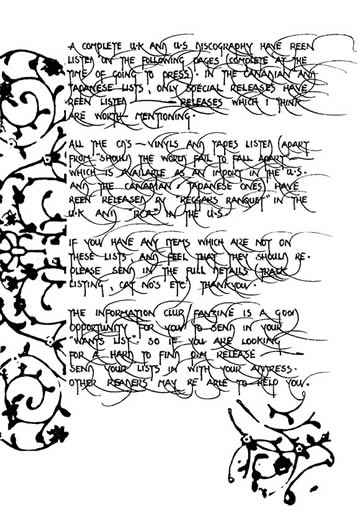 A COMPLETE U.K AND U.S DISCOGRAPHY HAVE BEEN
LISTED ON THE FOLLOWING PAGES (COMPLETE AT THE
TIME OF GOING TO PRESS). IN THE CANADIAN AND
JAPANESE LISTS, ONLY SPECIAL RELEASES HAVE
BEEN LISTED — RELEASES WHICH I THINK
ARE WORTH MENTIONING.
ALL THE CD'S — VINYLS AND TAPES LISTED (APART
FROM "SHOULD THE WORLD FAIL TO FALL APART" —
WHICH IS AVAILABLE AS AN IMPORT IN THE U.S.
AND THE CANADIAN + JAPANESE ONES) HAVE
BEEN RELEASED BY "BEGGARS BANQUET" IN THE
U.K AND "RCA" IN THE U.S.
IF YOU HAVE ANY ITEMS WHICH ARE NOT ON
THESE LISTS, AND FEEL THAT THEY SHOULD BE -
PLEASE SEND IN THE FULL DETAILS (TRACK
LISTING, CAT NO'S ETC) THANKYOU.
THE INFORMATION CLUB/FANZINE IS A GOOD
OPPORTUNITY FOR YOU TO SEND IN YOUR
"WANTS LIST". SO IF YOU ARE LOOKING
FOR A HARD TO FIND P.M RELEASE —
SEND YOUR LISTS IN WITH YOUR ADDRESS.
OTHER READERS MAY BE ABLE TO HELP YOU.